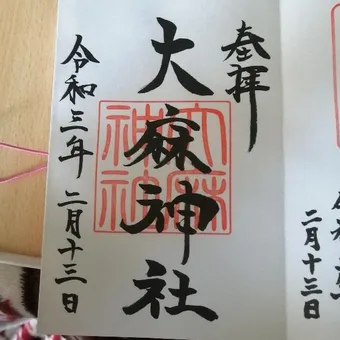 奉拝
大麻神社
大麻神社
令和三年 二月十三日
二月十三日